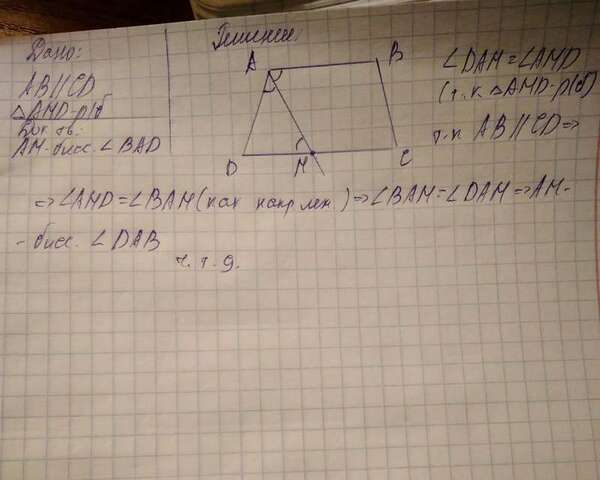 Дано:
AB||CD
△AMD-р/б
Док-ть:
AM-бисс. ∠BAD
Решение:
A
B
D
M
C
∠DAM=∠AMD
(т.к △AMD-р/б)
т.к AB||CD=>
=>∠AMD=∠BAM(как накр леж.)=>∠BAM=∠DAM=>AM-
-бисс. ∠DAB
ч.т.д.